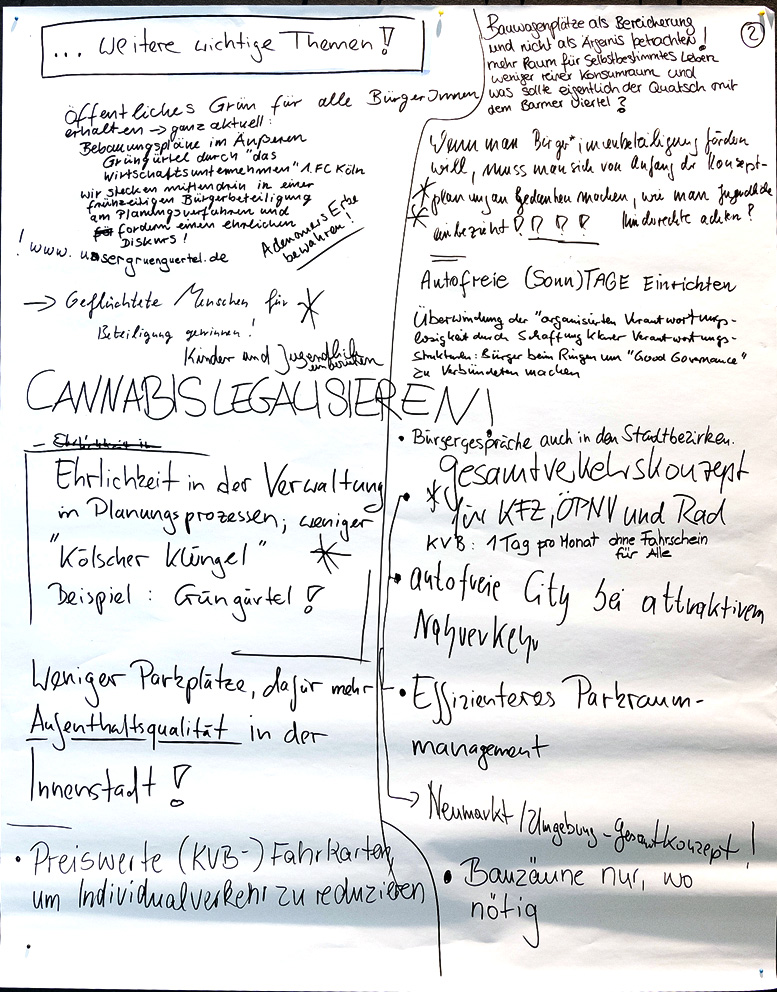 ... weitere wichtige Themen!
Öffentliches Grün für alle BürgerInnen
erhalten → ganz aktuell:
Bebauungspläne im Äußeren
Grüngürtel durch "das
Wirtschaftsunternehmen" 1. FC Köln
Wir stecken mittendrin in einer
frühzeitigen Bürgerbeteiligung
am Planungsverfahren und
fordern einen ehrlichen
Diskurs!
! www.unsergruenguertel.de
Adenauers Erbe
bewahren!
→ Geflüchtete Menschen für
Beteiligung gewinnen!
Kinder und Jugendliche
einbeziehen
CANNABIS LEGALISIEREN!
– Ehrlichkeit in
Ehrlichkeit in der Verwaltung
in Planungsprozessen, weniger
"Kölscher Klüngel" *
Beispiel: Grüngürtel!
Weniger Parkplätze, dafür mehr
Aufenthaltsqualität in der
Innenstadt!
• Preiswerte (KVB-) Fahrkarten,
um Individualverkehr zu reduzieren
2
Bauwagenplätze als Bereicherung
und nicht als Ärgernis betrachten!
mehr Raum für Selbstbestimmtes Leben
weniger reiner Konsumraum und
was sollte eigentlich der Quatsch mit
dem Barmer Viertel?
Wenn man Bürger*innenbeteiligung fördern
will, muss man sich von Anfang der Konzept-
* planung an Gedanken machen, wie man Jugendliche
* einbezieht! ! ! ! Kinderrechte achten?
Autofreie (Sonn)TAGE Einrichten
Überwindung der "organisierten Verantwortungs-
losigkeit durch Schaffung klarer Verantwortungs-
strukturen: Bürger beim Ringen um "Good Governance"
zu Verbündeten machen
• Bürgergespräche auch in den Stadtbezirken.
• * Gesamtverkehrskonzept
für KFZ, ÖPNV und Rad
KVB: 1 Tag pro Monat ohne Fahrschein
für Alle
• autofreie City bei attraktivem
Nahverkehr
• Effizienteres Parkraum-
management
→ Neumarkt/Umgebung-Gesamtkonzept!
• Bauzäune nur, wo
nötig